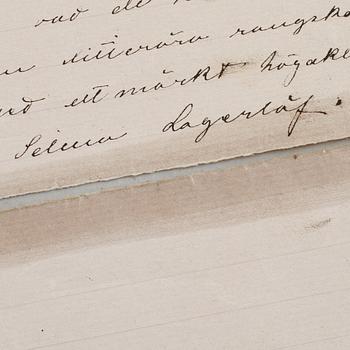 vad de
litterära rangsk
ett märkt högakt
Selma Lagerlöf.